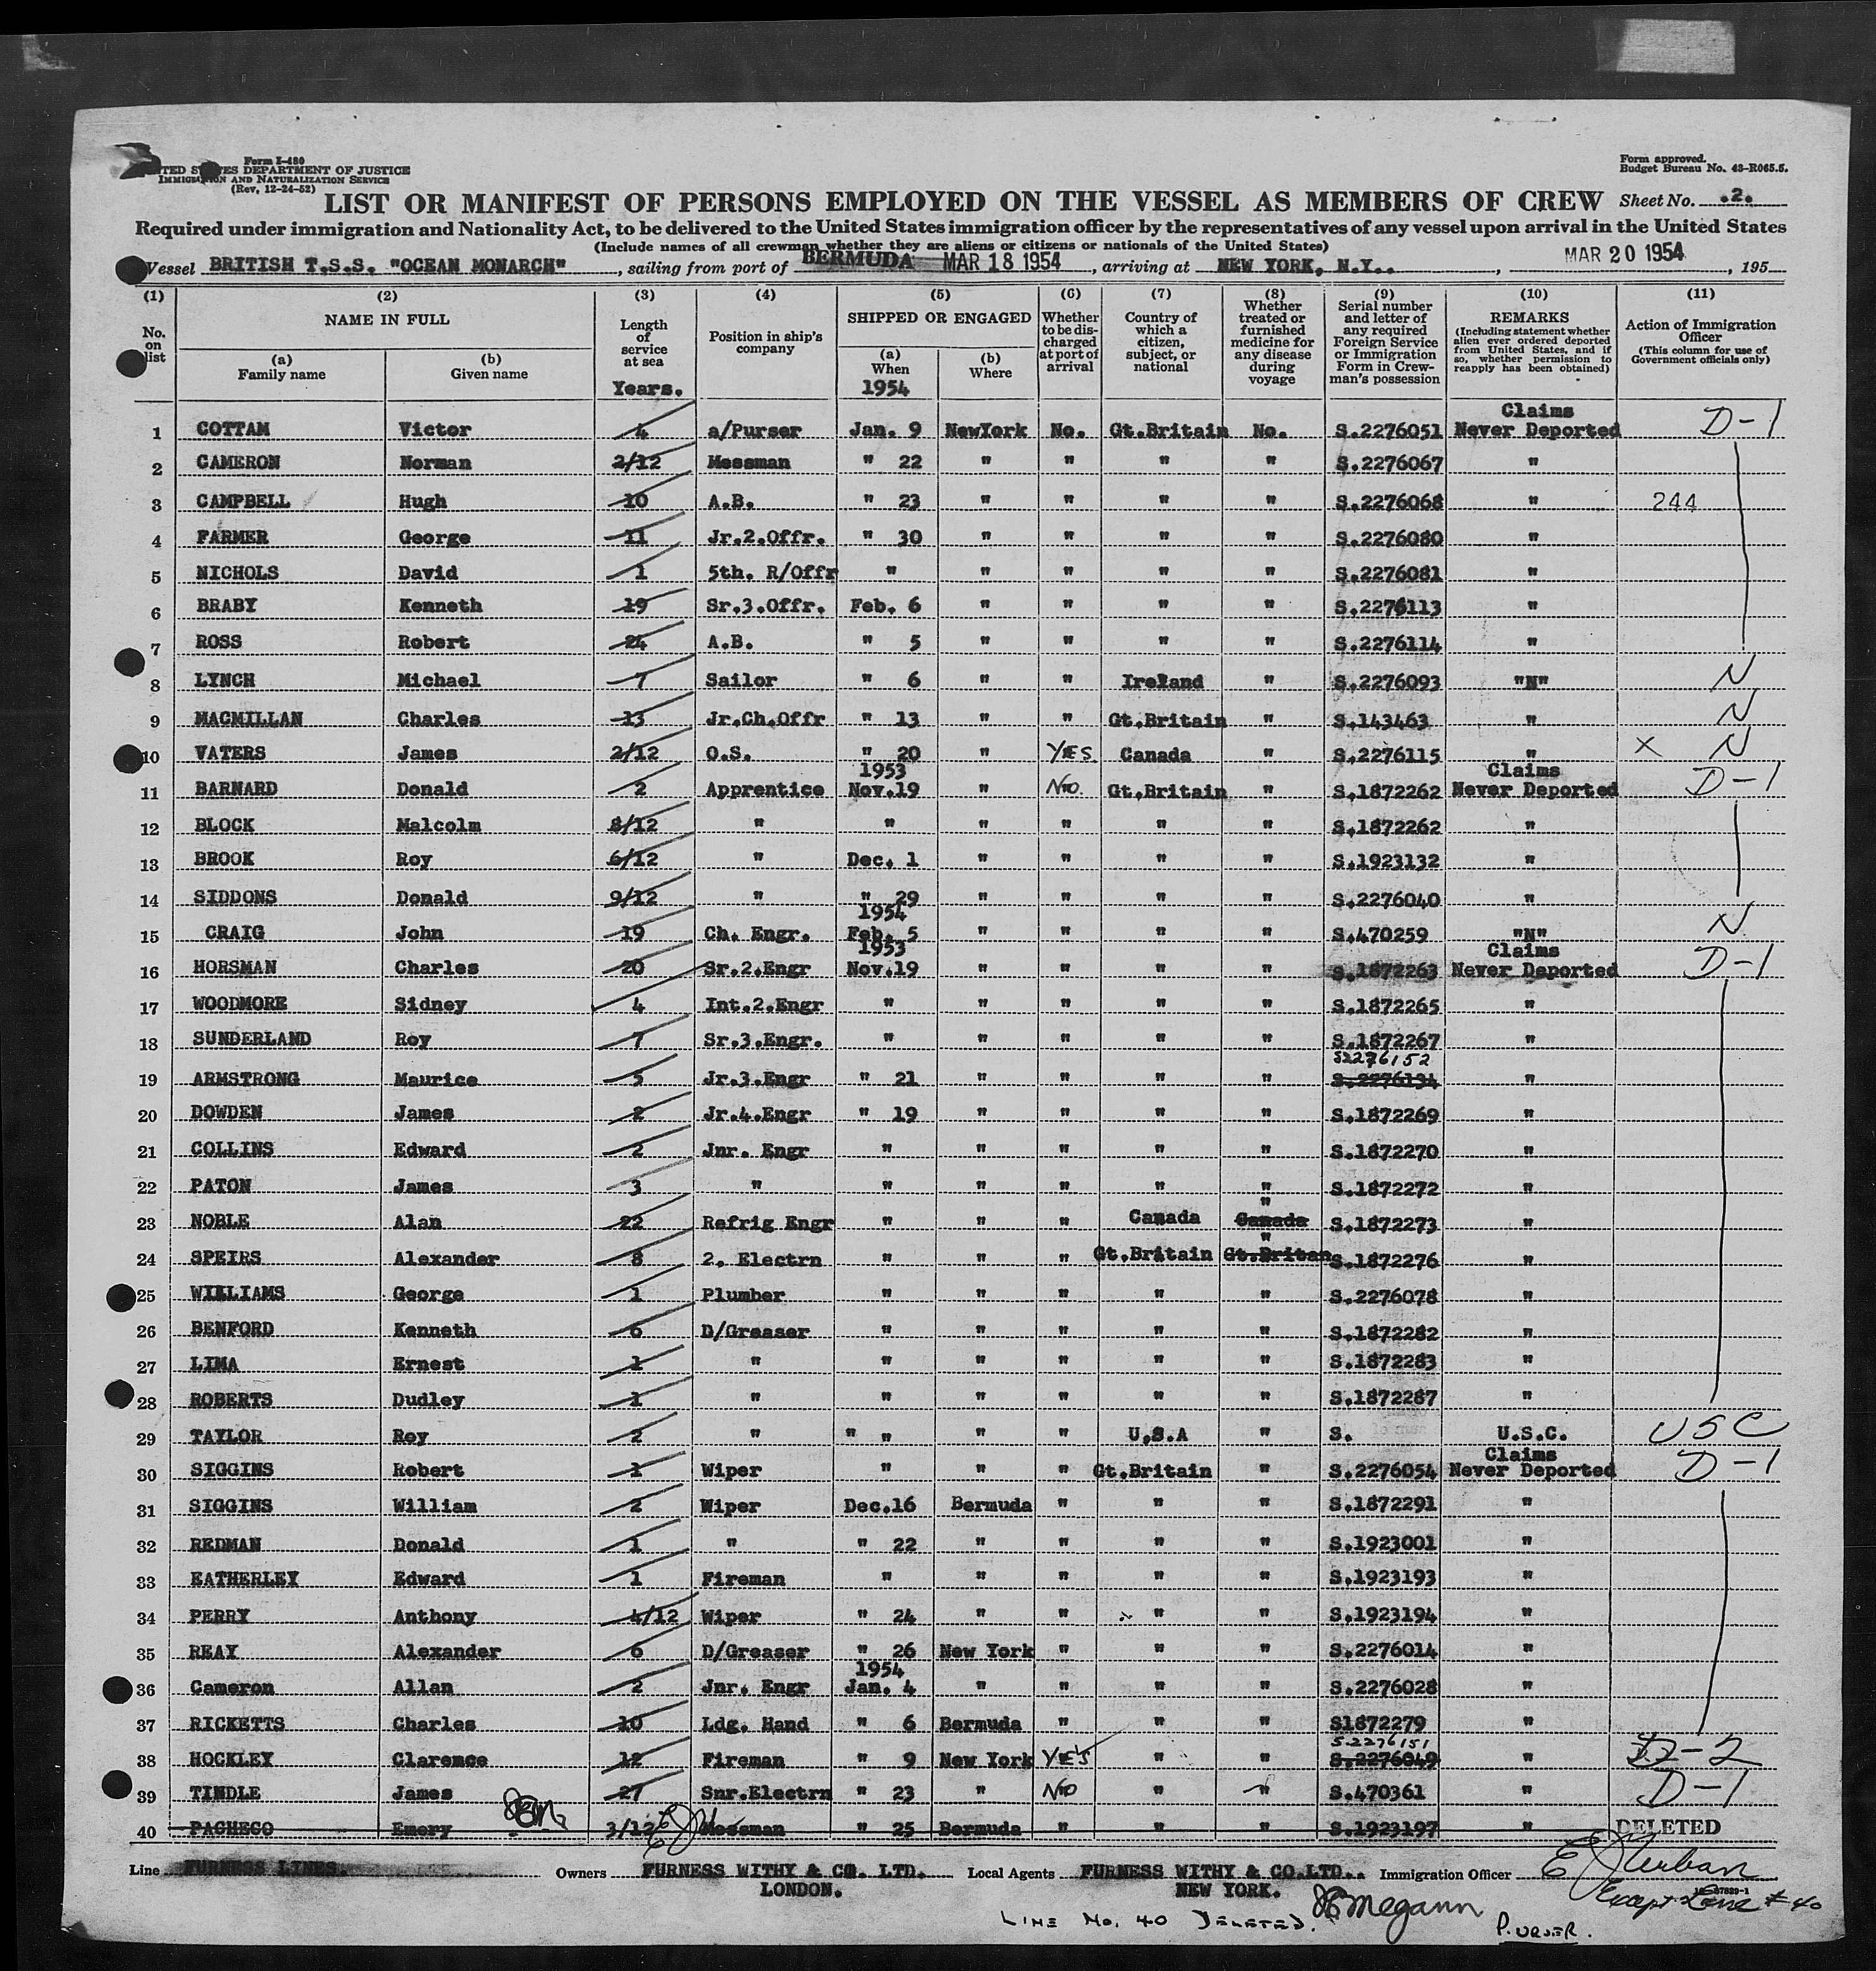 Form I-480
UNITED STATES DEPARTMENT OF JUSTICE
IMMIGRATION AND NATURALIZATION SERVICE
(Rev. 12-24-52)
Form approved.
Budget Bureau No. 43-R065.5.
LIST OR MANIFEST OF PERSONS EMPLOYED ON THE VESSEL AS MEMBERS OF CREW Sheet No. .2.
Required under immigration and Nationality Act, to be delivered to the United States immigration officer by the representatives of any vessel upon arrival in the United States
(Include names of all crewman whether they are aliens or citizens or nationals of the United States)
Vessel BRITISH T.S.S. "OCEAN MONARCH", sailing from port of BERMUDA MAR 18 1954, arriving at NEW YORK, N.Y., MAR 20 1954, 195
(1) No. on list
(2) NAME IN FULL (a) Family name (b) Given name
(3) Length of service at sea Years.
(4) Position in ship's company
(5) SHIPPED OR ENGAGED (a) When 1954 (b) Where
(6) Whether to be discharged at port of arrival
(7) Country of which a citizen, subject, or national
(8) Whether treated or furnished medicine for any disease during voyage
(9) Serial number and letter of any required Foreign Service or Immigration Form in Crewman's possession
(10) REMARKS (Including statement whether alien ever ordered deported from United States, and if so, whether permission to reapply has been obtained)
(11) Action of Immigration Officer (This column for use of Government officials only)
1 COTTAM Victor 4 a/Purser Jan. 9 NewYork No. Gt.Britain No. S.2276051 Claims Never Deported D-1
2 CAMERON Norman 2/12 Messman " 22 " " " " S.2276067 "
3 CAMPBELL Hugh 10 A.B. " 23 " " " " S.2276068 " 244
4 FARMER George 11 Jr.2.Offr. " 30 " " " " S.2276080 "
5 NICHOLS David 1 5th. R/Offr " " " " " S.2276081 "
6 BRABY Kenneth 19 Sr.3.Offr. Feb. 6 " " " " S.2276113 "
7 ROSS Robert 24 A.B. " 5 " " " " S.2276114 "
8 LYNCH Michael 7 Sailor " 6 " " Ireland " S.2276093 "N" N
9 MACMILLAN Charles 13 Jr.Ch.Offr " 13 " " Gt.Britain " S.143463 " N
10 VATERS James 2/12 O.S. " 20 " YES Canada " S.2276115 " x N
11 BARNARD Donald 2 Apprentice 1953 Nov.19 " No. Gt.Britain " S.1872262 Claims Never Deported D-1
12 BLOCK Malcolm 8/12 " " " " " " S.1872262 "
13 BROOK Roy 6/12 " Dec. 1 " " " " S.1923132 "
14 SIDDONS Donald 9/12 " " 29 " " " " S.2276040 "
15 CRAIG John 19 Ch. Engr. 1954 Feb. 5 " " " " S.470259 "N" N
16 HORSMAN Charles 20 Sr.2.Engr 1953 Nov.19 " " " " S.1872263 Claims Never Deported D-1
17 WOODMORE Sidney 4 Int.2.Engr " " " " " S.1872265 "
18 SUNDERLAND Roy 7 Sr.3.Engr. " " " " " S.1872267 "
19 ARMSTRONG Maurice 5 Jr.3.Engr " 21 " " " " S2276152 S.2276134 "
20 DOWDEN James 2 Jr.4.Engr " 19 " " " " S.1872269 "
21 COLLINS Edward 2 Jnr. Engr " " " " " S.1872270 "
22 PATON James 3 " " " " " " S.1872272 "
23 NOBLE Alan 22 Refrig Engr " " " Canada " Canada S.1872273 "
24 SPEIRS Alexander 8 2. Electrn " " " Gt.Britain " Gt.Britan S.1872276 "
25 WILLIAMS George 1 Plumber " " " " " S.2276078 "
26 BENFORD Kenneth 6 D/Greaser " " " " " S.1872282 "
27 LIMA Ernest 1 " " " " " " S.1872283 "
28 ROBERTS Dudley 1 " " " " " " S.1872287 "
29 TAYLOR Roy 2 " " " " " U.S.A " S. U.S.C. USC
30 SIGGINS Robert 1 Wiper " " " Gt.Britain " S.2276054 Claims Never Deported D-1
31 SIGGINS William 2 Wiper Dec.16 Bermuda " " " S.1872291 "
32 REDMAN Donald 1 " " 22 " " " " S.1923001 "
33 EATHERLEY Edward 1 Fireman " " " " " S.1923193 "
34 PERRY Anthony 4/12 Wiper " 24 " " " " S.1923194 "
35 REAY Alexander 6 D/Greaser " 26 New York " " " S.2276014 "
36 Cameron Allan 2 Jnr. Engr 1954 Jan. 4 " " " " S.2276028 "
37 RICKETTS Charles 10 Ldg. Hand " 6 Bermuda " " " S1872279 "
38 HOCKLEY Clarence 12 Fireman " 9 New York YES " " S.2276151 S.2276049 " D-2
39 TINDLE James 27 Snr.Electrn " 23 " No " " S.470361 " D-1
40 PACHECO Emery 3/12 Messman " 25 Bermuda " " " S.1923197 " DELETED
Line FURNESS LINES. Owners FURNESS WITHY & CO. LTD. LONDON. Local Agents FURNESS WITHY & CO.LTD.. NEW YORK. Immigration Officer
Except Line #40
LINE No. 40 DELETED.
PURSER.